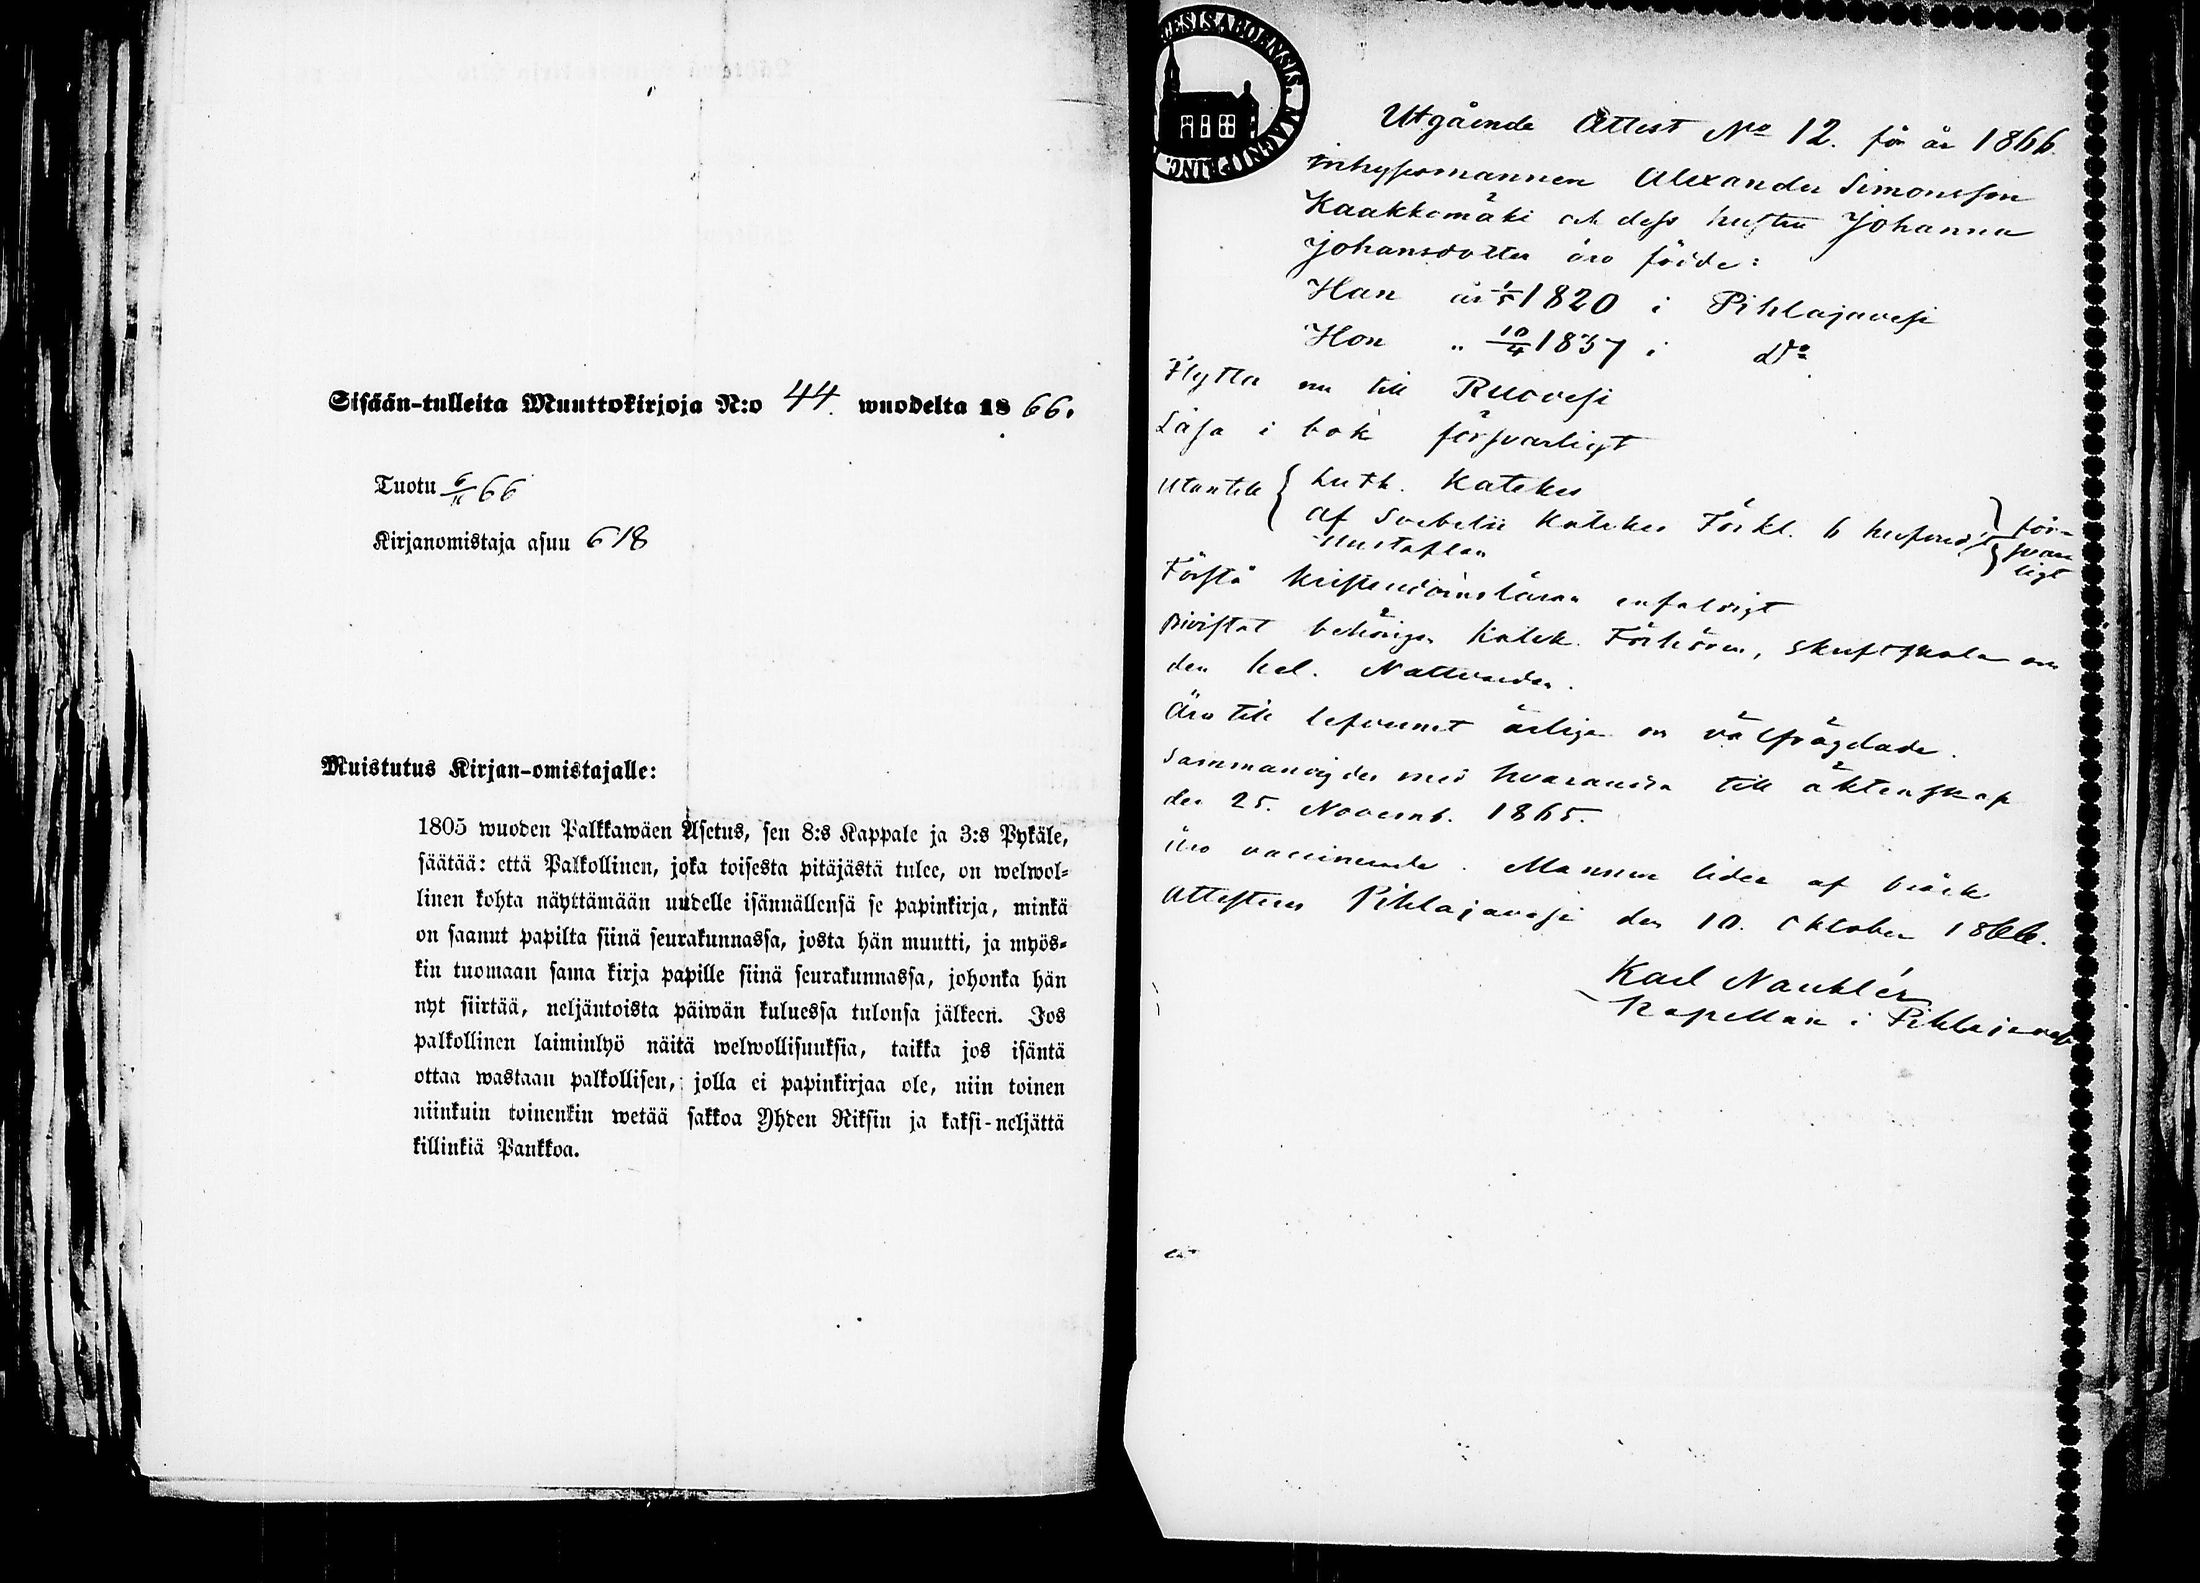 Sisään-tulleita Muuttokirjoja N:o 44. wuodelta 18 66.
Tuotu 6/11 66
Kirjanomistaja asuu 618
Muistutus Kirjan-omistajalle:
1805 wuoden Palkkawäen Asetus, sen 8:s Kappale ja 3:s Pykäle,
säätää: että Palkollinen, joka toisesta pitäjästä tulee, on welwol-
linen kohta näyttämään uudelle isännällensä se papinkirja, minkä
on saanut papilta siinä seurakunnassa, josta hän muutti, ja myös-
kin tuomaan sama kirja papille siinä seurakunnassa, johonka hän
nyt siirtää, neljäntoista päiwän kuluessa tulonsa jälkeen. Jos
palkollinen laiminlyö näitä welwollisuuksia, taikka jos isäntä
ottaa wastaan palkollisen, jolla ei papinkirjaa ole, niin toinen
niinkuin toinenkin wetää sakkoa Yhden Riksin ja kaksi-neljättä
killinkiä Pankkoa.
ESIS ABOENSIS. MAGNI PRINC.
Utgående Attest No 12. för år 1866.
inhysesmannen Alexander Simonsson
Kaakkomäki och dess hustru Johanna
Johansdotter äro födde:
Han år 1/5 1820 i Pihlajavesi
Hon " 10/4 1837 i Do
Flytta nu till Ruovesi
Läsa i bok försvarligt
Utantill { Luth. Katekes
af Svebelii Katekes Förkl. 6 hufvud } för-
Hustaflan svar
ligt
Förstå kristendomsläran enfaldigt
Bivistat behörigen Katek. Förhören, skriftskola och
den hel. Nattvarden.
Äro till lefvernet ärliga och välfrägdade.
Sammanvigdes med hvarandra till äktenskap
den 25. Novemb. 1865.
äro vaccinerade. Mannen lider af bråck
Attesteras Pihlajavesi den 10. Oktober 1866.
Karl Nauklér
Kapellan i Pihlajavesi